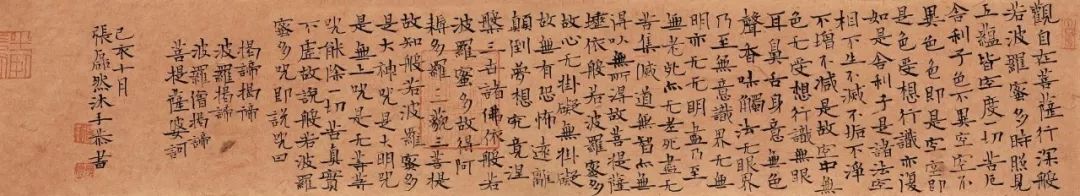 觀自在菩薩行深般
若波羅蜜多時照見
五蘊皆空度一切苦厄
舍利子色不異空空不
異色色即是空空即
是色受想行識亦復
如是舍利子是諸法空
相不生不滅不垢不淨
不增不減是故空中無
色无受想行識無眼
耳鼻舌身意无色
聲香味觸法无眼界
乃至無意識界无無
明亦无无明盡乃至
無老死亦无老死盡无
苦集滅道無智亦無
得以無所得故菩提薩
埵依般若波羅蜜多
故心无掛礙無掛礙
故無有恐怖遠離
顛倒夢想究竟涅
槃三世諸佛依般若
波羅蜜多故得阿
耨多羅三藐三菩提
故知般若波羅蜜多
是大神咒是大明咒
是無上咒是无等等
咒能除一切苦真實
不虛故說般若波羅
蜜多咒即說咒曰
揭諦揭諦
波羅揭諦
波羅僧揭諦
菩提薩婆訶
己亥十月
張磊然沐手恭書